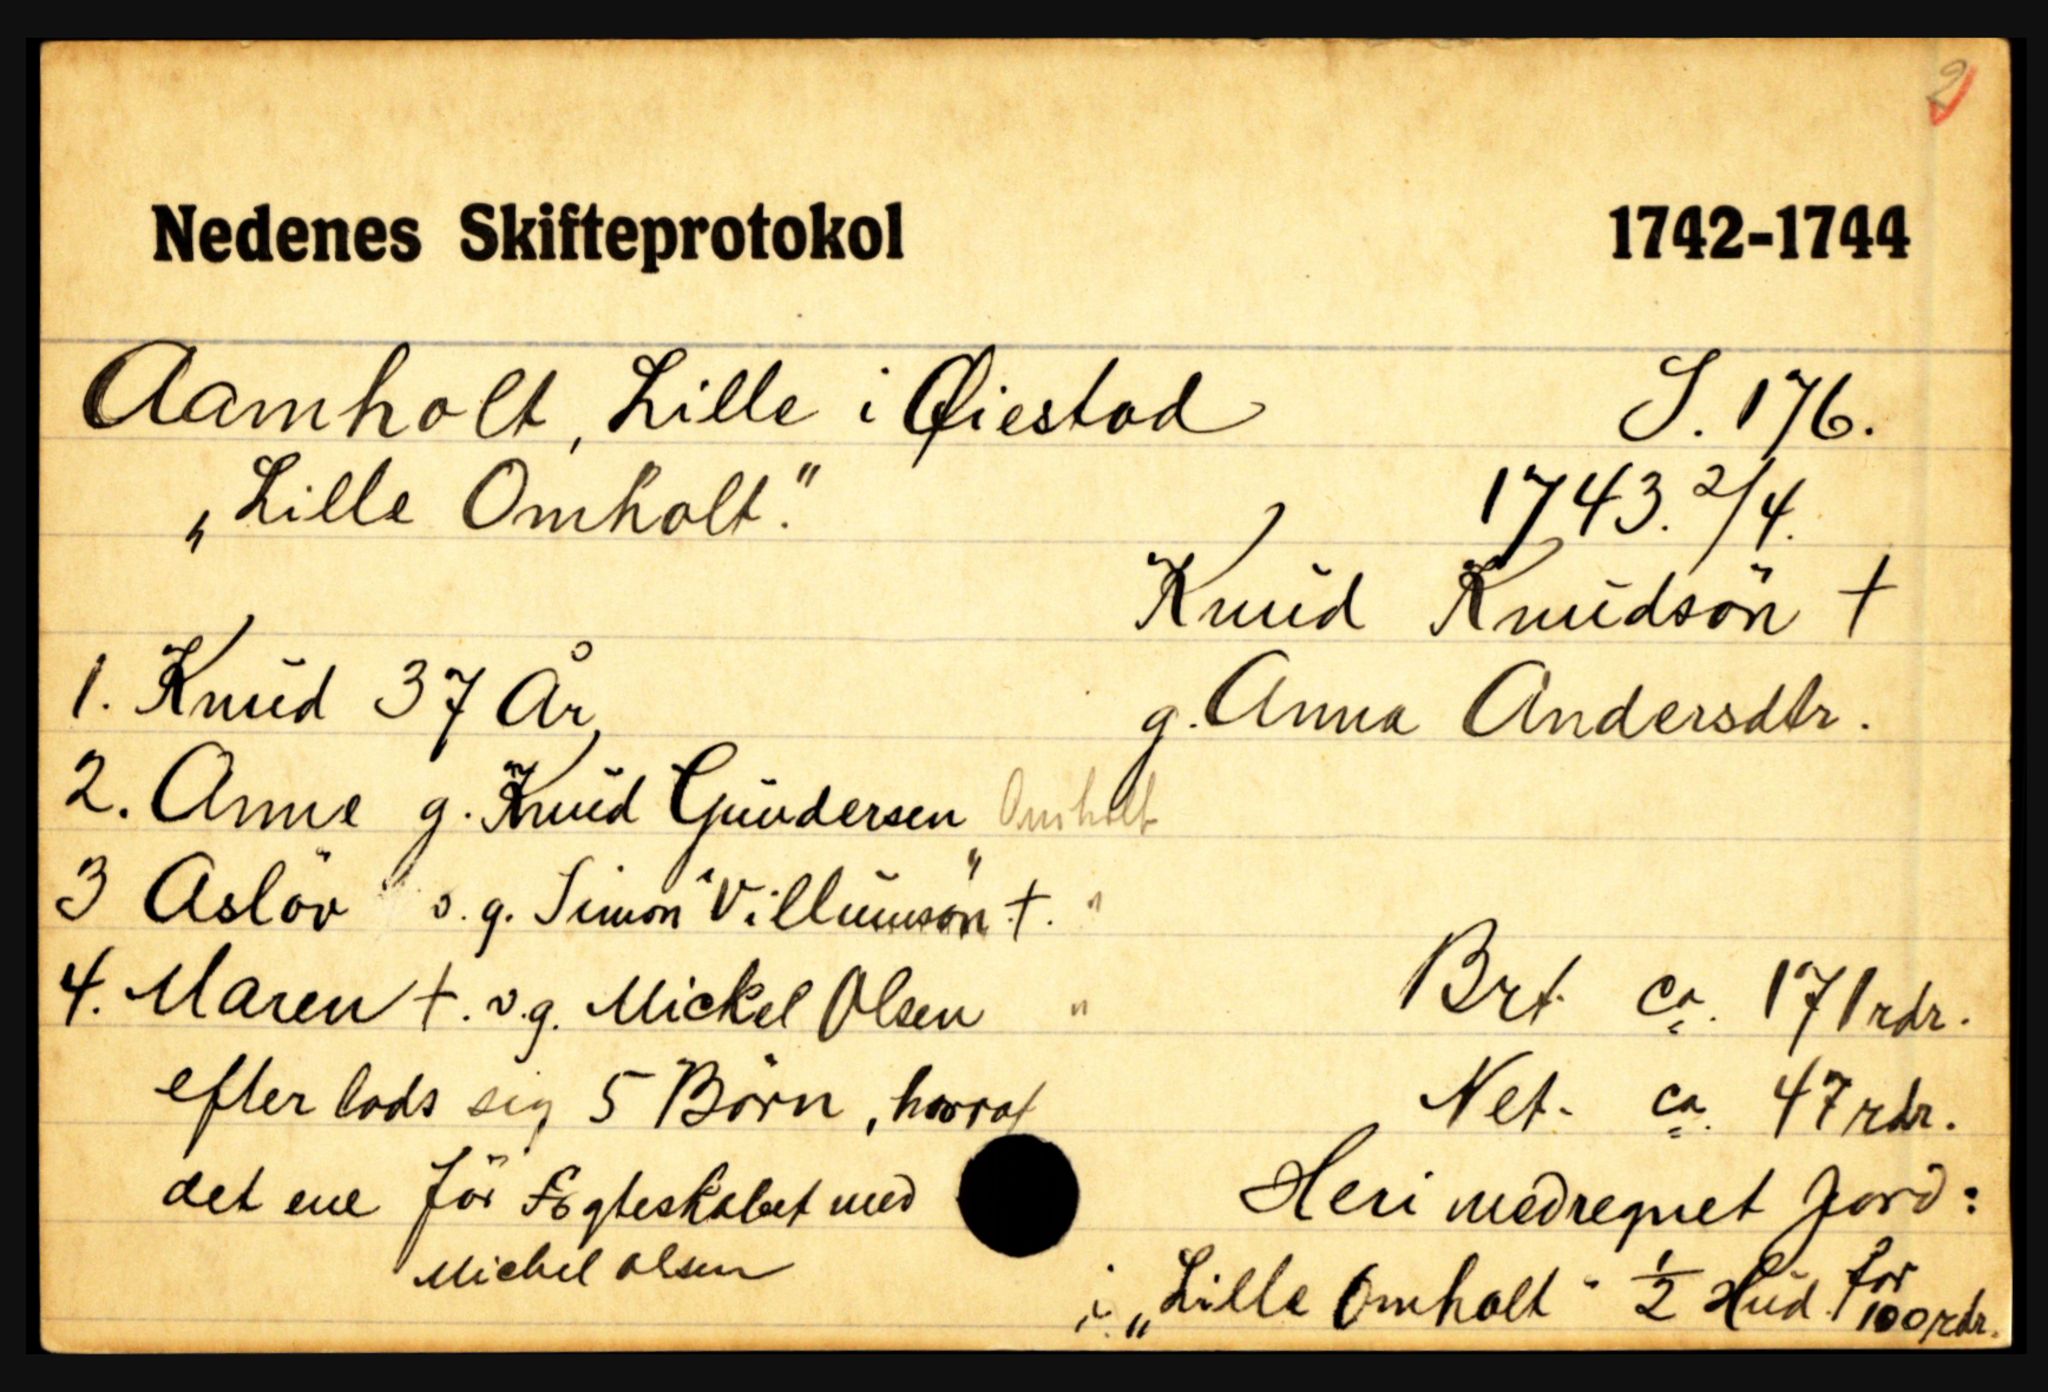 2
Nedenes Skifteprotokol 1742-1744
Aamholt, Lille i Øiestad S. 176.
„Lille Omholt." 1743. 2/4.
Knud Knudsön †
1. Knud 37 År, g. Anna Andersdtr.
2. Anne g. Knud Gundersen Omholt
3 Aslöv v. g. Simon Villumsön †. "
4. Maren †. v.g. Mickel Olsen " Brt. ca. 171 rdr.
efterlods sig 5 Börn, hvoraf Net. ca. 47 rdr.
det ene för Egteskabet med Heri medregnet Jord:
Michel Olsen
i „Lille Omholt" 1/2 Hud. for 100 rdr.